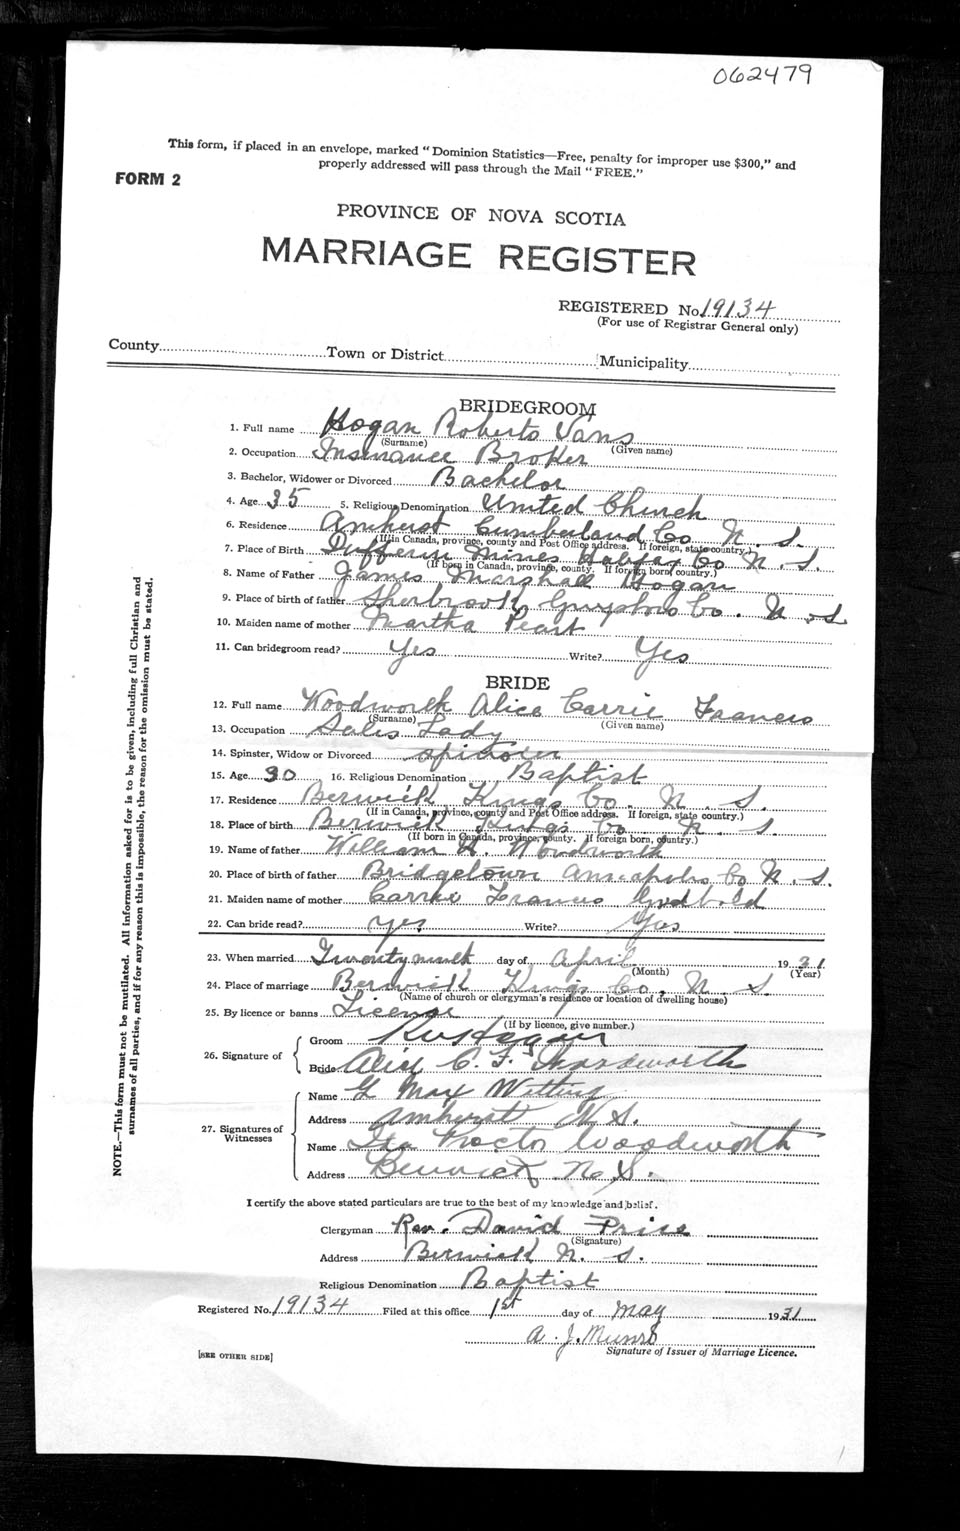 062479
This form, if placed in an envelope, marked "Dominion Statistics—Free, penalty for improper use $300," and
properly addressed will pass through the Mail "FREE."
FORM 2
PROVINCE OF NOVA SCOTIA
MARRIAGE REGISTER
REGISTERED No. 19134
(For use of Registrar General only)
County Town or District Municipality
BRIDEGROOM
1. Full name Hogan Roberto Vans
(Surname) (Given name)
2. Occupation Insurance Broker
3. Bachelor, Widower or Divorced Bachelor
4. Age 35 5. Religious Denomination United Church
6. Residence Amherst Cumberland Co N. S.
(If in Canada, province, county and Post Office address. If foreign, state country.)
7. Place of Birth Dufferin Mines Halifax Co N. S.
(If born in Canada, province, county. If foreign born, country.)
8. Name of Father James Marshall Hogan
9. Place of birth of father Sherbrook Guysboro Co. N. S.
10. Maiden name of mother Martha Peart
11. Can bridegroom read? Yes Write? Yes
BRIDE
12. Full name Woodworth Alice Carrie Francis
(Surname) (Given name)
13. Occupation Sales Lady
14. Spinster, Widow or Divorced spinster
15. Age 30 16. Religious Denomination Baptist
17. Residence Berwick Kings Co. N. S.
(If in Canada, province, county and Post Office address. If foreign, state country.)
18. Place of birth Berwick Kings Co N. S
(If born in Canada, province, county. If foreign born, country.)
19. Name of father William Woodworth
20. Place of birth of father Bridgetown Annapolis Co N. S.
21. Maiden name of mother Carrie Francis
22. Can bride read? yes Write? Yes
23. When married Twenty ninth day of April 1931
(Month) (Year)
24. Place of marriage Berwick Kings Co. N. S.
(Name of church or clergyman's residence or location of dwelling house)
25. By licence or banns License
(If by licence, give number.)
26. Signature of Groom Hogan
Bride Alice C. F. Woodworth
27. Signatures of Witnesses
Name G Max
Address Amherst N. S.
Name Proctor Woodworth
Address Berwick N. S.
I certify the above stated particulars are true to the best of my knowledge and belief.
Clergyman Rev. David Price
(Signature)
Address Berwick N. S.
Religious Denomination Baptist
Registered No. 19134 Filed at this office 1st day of May 1931
A. J. Munro
Signature of Issuer of Marriage Licence.
[SEE OTHER SIDE]
NOTE.—This form must not be mutilated. All information asked for is to be given, including full Christian and
surnames of all parties, and if for any reason this is impossible, the reason for the omission must be stated.